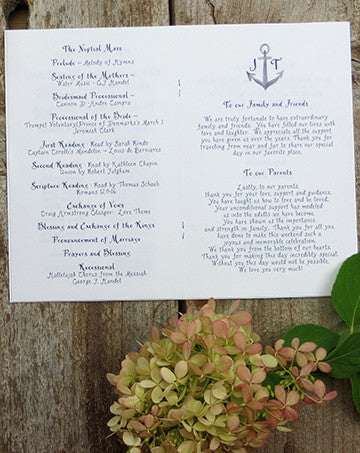 The Nuptial Mass
Prelude ~ Melody of Hymns
Seating of the Mothers ~
Water Music - G.F. Handel
Bridesmaid Processional ~
Cannon D Andre Campra
Processional of the Bride ~
Trumpet Voluntary (Prince of Denmark's March)
Jeremiah Clark
First Reading - Read by Sarah Rinde
Captain Corelli's Mandolin - Louis de Bernieres
Second Reading - Read by Kathleen Chapin
Union by Robert Fulghum
Scripture Reading - Read by Thomas Schaub
Romans 12:9-16
Exchange of Vows
Craig Armstrong Glasgow - Love Theme
Blessing and Exchange of the Rings
Pronouncement of Marriage
Prayers and Blessing
Recessional
Hallelujah Chorus from the Messiah
George F. Handel
J T
To our Family and Friends
We are truly fortunate to have extraordinary
family and friends. You have filled our lives with
love and laughter. We appreciate all the support
you have given us over the years. Thank you for
traveling from near and far to share our special
day in our favorite place.
To our Parents
Lastly, to our parents,
thank you for your love, support and guidance.
You have taught us how to love and be loved.
Your unconditional support has molded
us into the adults we have become.
You have shown us the importance
and strength in family. Thank you for all you
have done to make this weekend such a
joyous and memorable celebration.
We thank you from the bottom of our hearts.
Thank you for making this day incredibly special.
Without you this day would not be possible.
We love you very much!